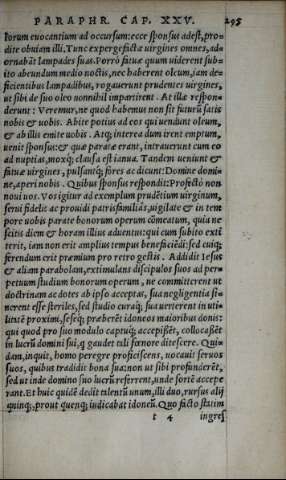 PARAPHR. CAP. XXV. 295
lorum euocantium ad occursum: ecce sponsus adest, pro=
dite obuiam illi. Tunc expergefactæ uirgines omnes, ad=
ornabāt lampades suas. Porrò fatuæ quum uiderent sub=
ito abeundum medio noctis, nec haberent oleum, iam de=
ficientibus lampadibus, rogauerunt prudentes uirgines,
ut sibi de suo oleo nonnihil impartirent. At illæ respon=
derunt: Veremur, ne quod habemus non sit futurū satis
nobis & uobis. Abite potius ad eos qui uendunt oleum,
& ab illis emite uobis. Atq; interea dum irent emptum,
uenit sponsus: & quæ paratæ erant, intrauerunt cum eo
ad nuptias, moxq; clausa est ianua. Tandem ueniunt &
fatuæ uirgines, pulsantq; fores ac dicunt: Domine domi=
ne, aperi nobis. Quibus sponsus respondit: Profectò non
noui uos. Vos igitur ad exemplum prudētium uirginum,
serui fidelis ac prouidi patrisfamiliâs, uigilate & in tem
pore uobis parate bonorum operum cōmeatum, quia ne
scitis diem & horam illius aduentus: qui cum subito exti
terit, iam non erit amplius tempus beneficiēdi: sed cuiq;
ferendum erit præmium pro retro gestis. Addidit Iesus
& aliam parabolam, extimulans discipulos suos ad per=
petuum studium bonorum operum, ne committerent ut
doctrinam ac dotes ab ipso acceptas, sua negligentia si=
nerent esse steriles, sed studio curaq; sua uerterent in uti=
litatē proximi, seseq; præberēt idoneos maioribus donis:
qui quod pro suo modulo captuq; accepissēt, collocassēt
in lucrū domini sui, q gaudet tali fœnore ditescere. Qui=
dam, inquit, homo peregre proficiscens, uocauit seruos
suos, quibus tradidit bona sua: non ut sibi profunderēt,
sed ut inde domino suo lucrū referrent, unde sortē accepe
rant. Et huic quidē dedit talentū unum, illi duo, rursus alij
quinq;, prout quenq; iudicabat idoneū. Quo facto statim
t 4 ingres